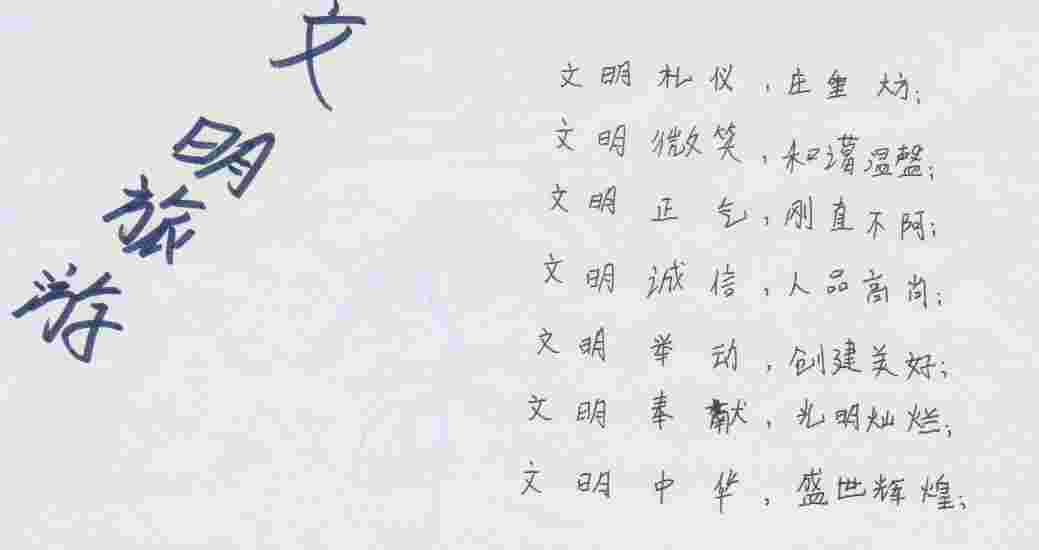 文明旅游
文明礼仪，庄重大方；
文明微笑，和蔼温馨；
文明正气，刚直不阿；
文明诚信，人品高尚；
文明举动，创建美好；
文明奉献，光明灿烂；
文明中华，盛世辉煌；